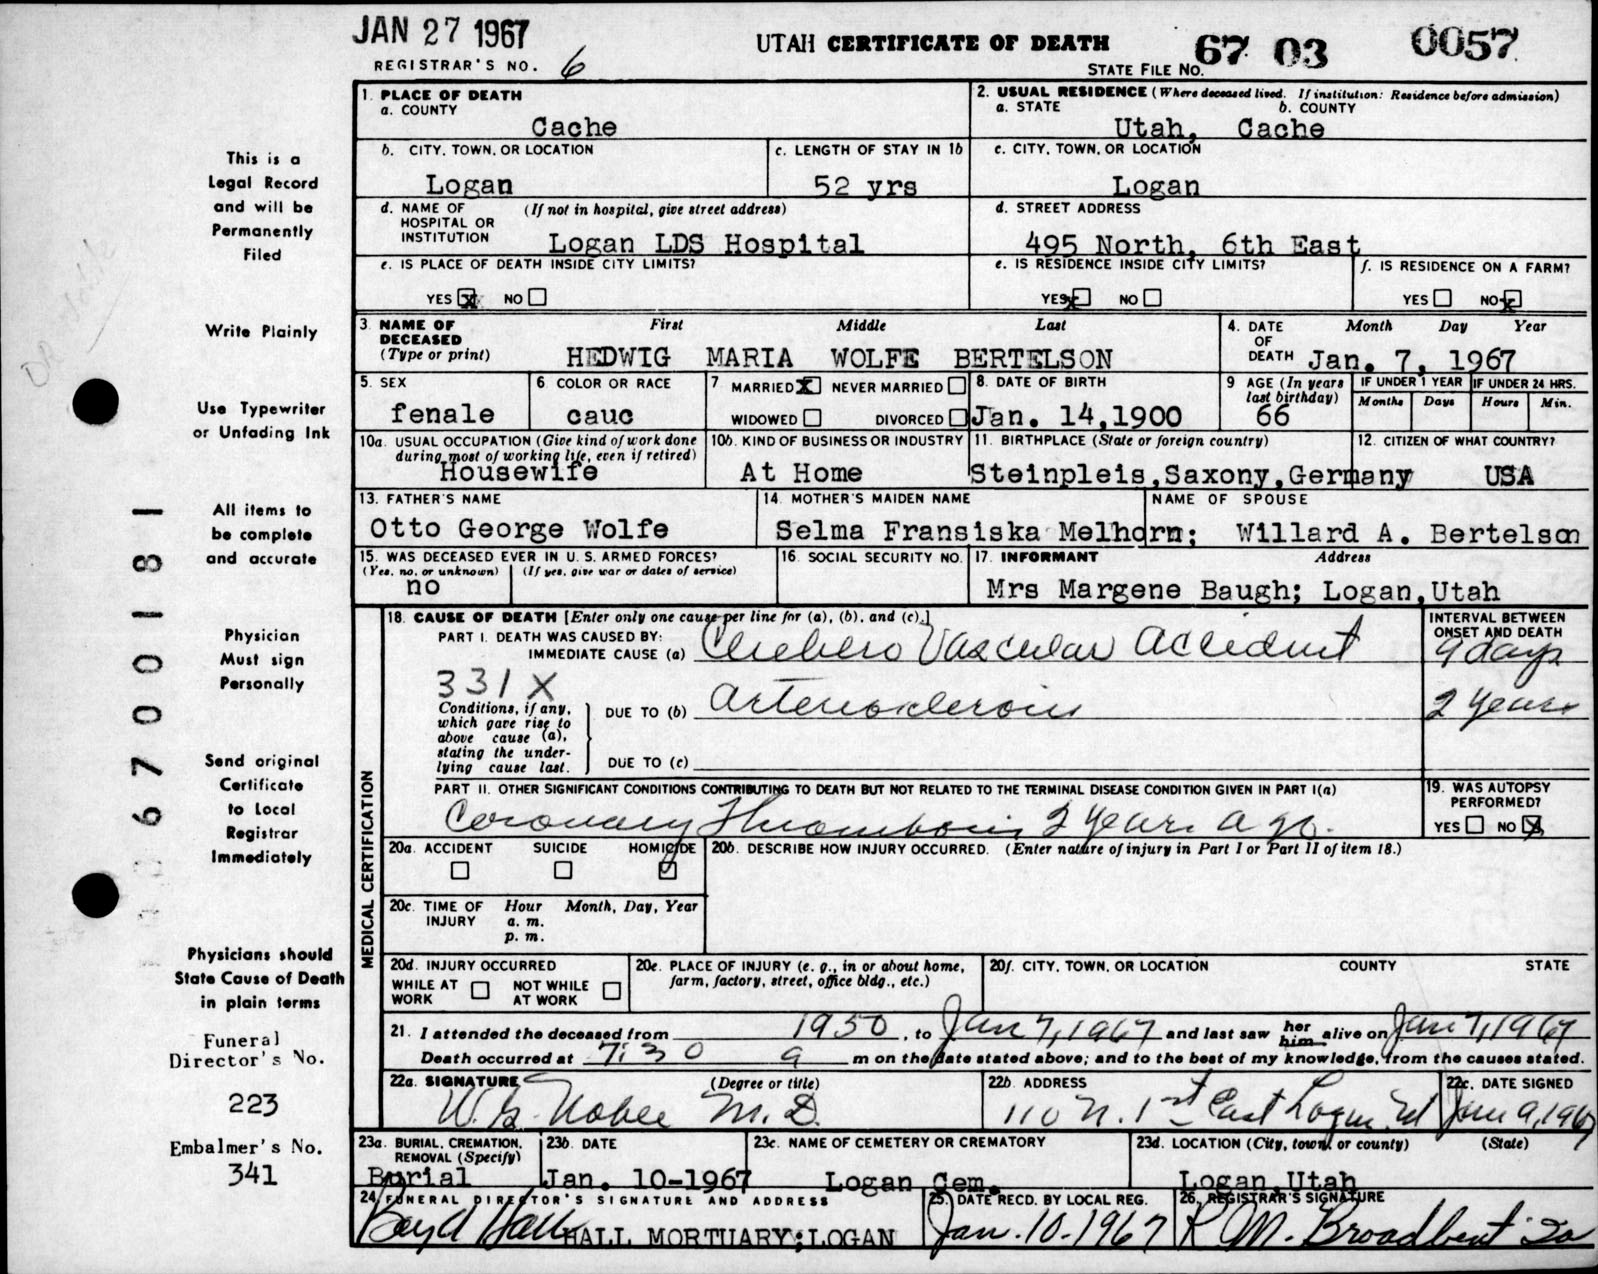 JAN 27 1967
REGISTRAR'S NO. 6
UTAH CERTIFICATE OF DEATH
STATE FILE NO. 67 03 0057
This is a
Legal Record
and will be
Permanently
Filed
Write Plainly
Use Typewriter
or Unfading Ink
All items to
be complete
and accurate
Physician
Must sign
Personally
Send original
Certificate
to Local
Registrar
Immediately
Physicians should
State Cause of Death
in plain terms
Funeral
Director's No.
223
Embalmer's No.
341
6700181
1. PLACE OF DEATH
a. COUNTY
Cache
2. USUAL RESIDENCE (Where deceased lived. If institution: Residence before admission)
a. STATE b. COUNTY
Utah, Cache
b. CITY, TOWN, OR LOCATION
Logan
c. LENGTH OF STAY IN 1b
52 yrs
c. CITY, TOWN, OR LOCATION
Logan
d. NAME OF HOSPITAL OR INSTITUTION (If not in hospital, give street address)
Logan LDS Hospital
d. STREET ADDRESS
495 North, 6th East
e. IS PLACE OF DEATH INSIDE CITY LIMITS?
YES X NO
e. IS RESIDENCE INSIDE CITY LIMITS?
YES x NO
f. IS RESIDENCE ON A FARM?
YES NO x
3. NAME OF DECEASED (Type or print) First Middle Last
HEDWIG MARIA WOLFE BERTELSON
4. DATE OF DEATH Month Day Year
Jan. 7, 1967
5. SEX
fenale
6. COLOR OR RACE
cauc
7 MARRIED X NEVER MARRIED
WIDOWED DIVORCED
8. DATE OF BIRTH
Jan. 14,1900
9 AGE (In years last birthday)
66
IF UNDER 1 YEAR IF UNDER 24 HRS.
Months Days Hours Min.
10a. USUAL OCCUPATION (Give kind of work done during most of working life, even if retired)
Housewife
10b. KIND OF BUSINESS OR INDUSTRY
At Home
11. BIRTHPLACE (State or foreign country)
Steinpleis,Saxony,Germany
12. CITIZEN OF WHAT COUNTRY?
USA
13. FATHER'S NAME
Otto George Wolfe
14. MOTHER'S MAIDEN NAME
Selma Fransiska Melhorn;
NAME OF SPOUSE
Willard A. Bertelson
15. WAS DECEASED EVER IN U. S. ARMED FORCES?
(Yes, no, or unknown) (If yes, give war or dates of service)
no
16. SOCIAL SECURITY NO.
17. INFORMANT Address
Mrs Margene Baugh; Logan,Utah
MEDICAL CERTIFICATION
18. CAUSE OF DEATH [Enter only one cause per line for (a), (b), and (c).]
INTERVAL BETWEEN ONSET AND DEATH
PART I. DEATH WAS CAUSED BY:
IMMEDIATE CAUSE (a) Cerebero Vascular Accident 9 days
331X
Conditions, if any, which gave rise to above cause (a), stating the underlying cause last.
DUE TO (b) Arteriosclerosis 2 years
DUE TO (c)
PART II. OTHER SIGNIFICANT CONDITIONS CONTRIBUTING TO DEATH BUT NOT RELATED TO THE TERMINAL DISEASE CONDITION GIVEN IN PART I(a)
Coronary Thrombosis 2 years ago.
19. WAS AUTOPSY PERFORMED?
YES NO X
20a. ACCIDENT SUICIDE HOMICIDE
20b. DESCRIBE HOW INJURY OCCURRED. (Enter nature of injury in Part I or Part II of item 18.)
20c. TIME OF INJURY Hour Month, Day, Year
a. m.
p. m.
20d. INJURY OCCURRED
WHILE AT WORK NOT WHILE AT WORK
20e. PLACE OF INJURY (e. g., in or about home, farm, factory, street, office bldg., etc.)
20f. CITY, TOWN, OR LOCATION COUNTY STATE
21. I attended the deceased from 1950, to Jan 7, 1967 and last saw her him alive on Jan 7, 1967
Death occurred at 7:30 a m on the date stated above; and to the best of my knowledge, from the causes stated.
22a. SIGNATURE (Degree or title)
M.D.
22b. ADDRESS
110 N. 1st East Logan Ut
22c. DATE SIGNED
Jan 9, 1967
23a. BURIAL, CREMATION, REMOVAL (Specify)
Burial
23b. DATE
Jan. 10-1967
23c. NAME OF CEMETERY OR CREMATORY
Logan Cem.
23d. LOCATION (City, town, or county) (State)
Logan,Utah
24 FUNERAL DIRECTOR'S SIGNATURE AND ADDRESS
Boyd Hall HALL MORTUARY;LOGAN
25. DATE RECD. BY LOCAL REG.
Jan. 10-1967
26. REGISTRAR'S SIGNATURE
R M. Broadbent